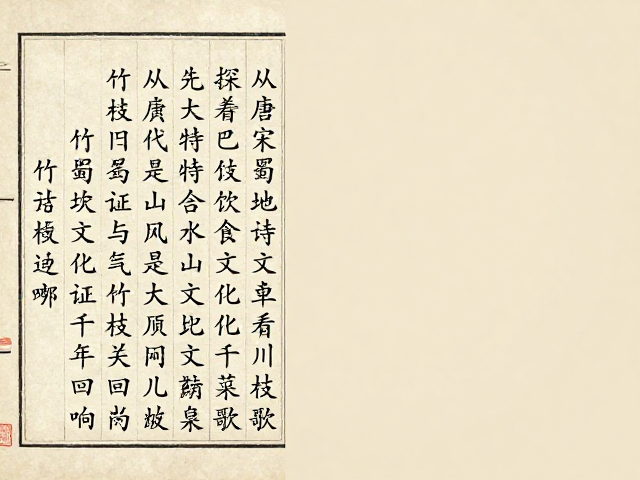 从唐宋蜀地诗文車看川枝歌
探着巴伎饮食文化化千菜歌
先大特特合水山文比文臯
从代是山风是大儿
竹枝曰证与气竹枝关回
竹蜀坎文化证千年回响
竹